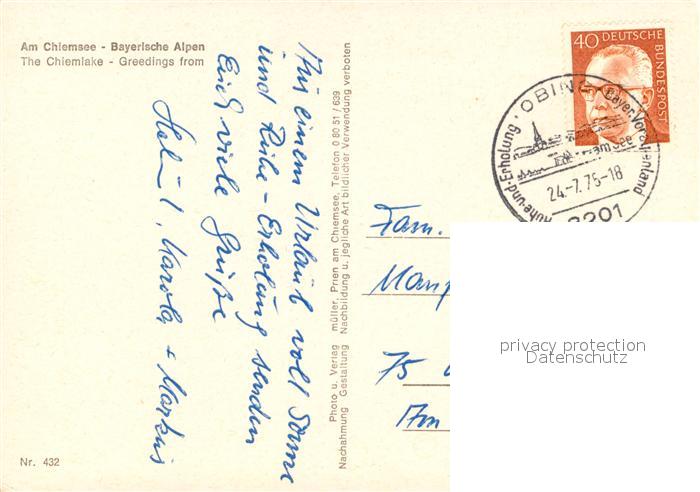 Am Chiemsee - Bayerische Alpen
The Chiemlake - Greedings from
Aus einem Urlaub voll Sonne
und Ruhe - Erholung senden
Euch viele Grüße
Helmut, Karola + Markus
Nr. 432
Photo u. Verlag müller, Prien am Chiemsee, Telefon 0 80 51 / 639
Nachahmung Gestaltung Nachbildung u. jegliche Art bildlicher Verwendung verboten
40 DEUTSCHE BUNDESPOST
OBING
Bayer. Voralpenland
am See
24.-7.75-18
8201
Ruhe-und-Erholung
Fam.
75
Am
privacy protection
Datenschutz